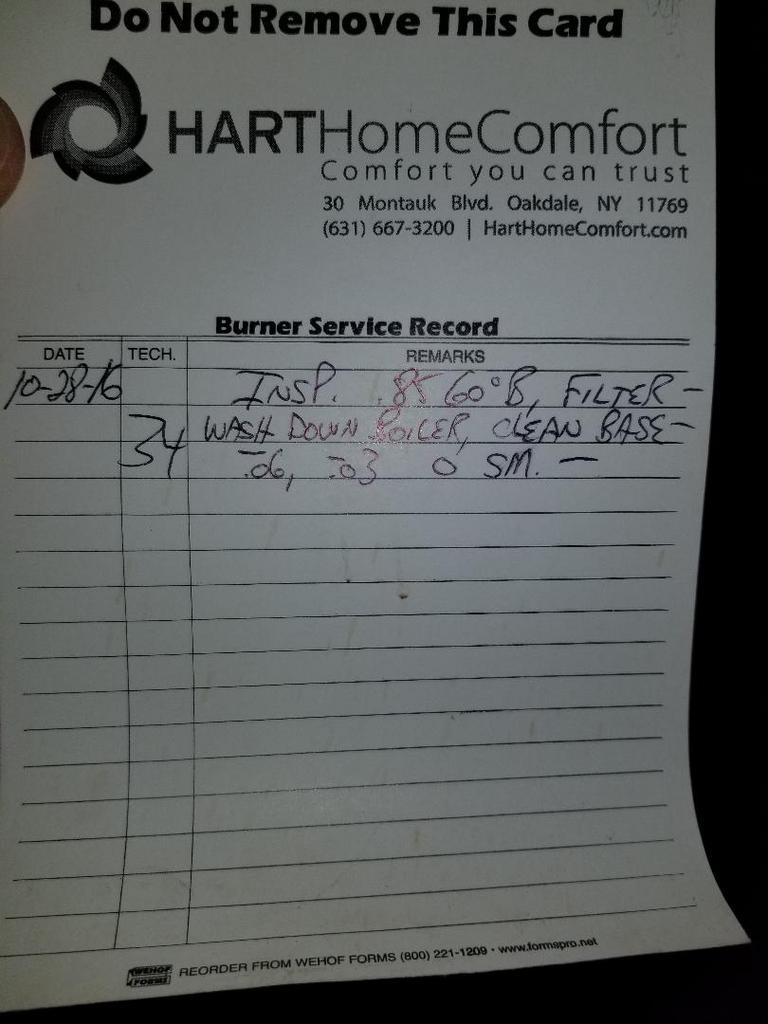 Do Not Remove This Card
HARTHomeComfort
Comfort you can trust
30 Montauk Blvd. Oakdale, NY 11769
(631) 667-3200 | HartHomeComfort.com
Burner Service Record
DATE TECH. REMARKS
10-28-16 INSP. .85 60°B, FILTER -
34 WASH DOWN BOILER, CLEAN BASE -
-.06, -.03 0 SM. -
WEHOF FORMS REORDER FROM WEHOF FORMS (800) 221-1209 • www.formspro.net